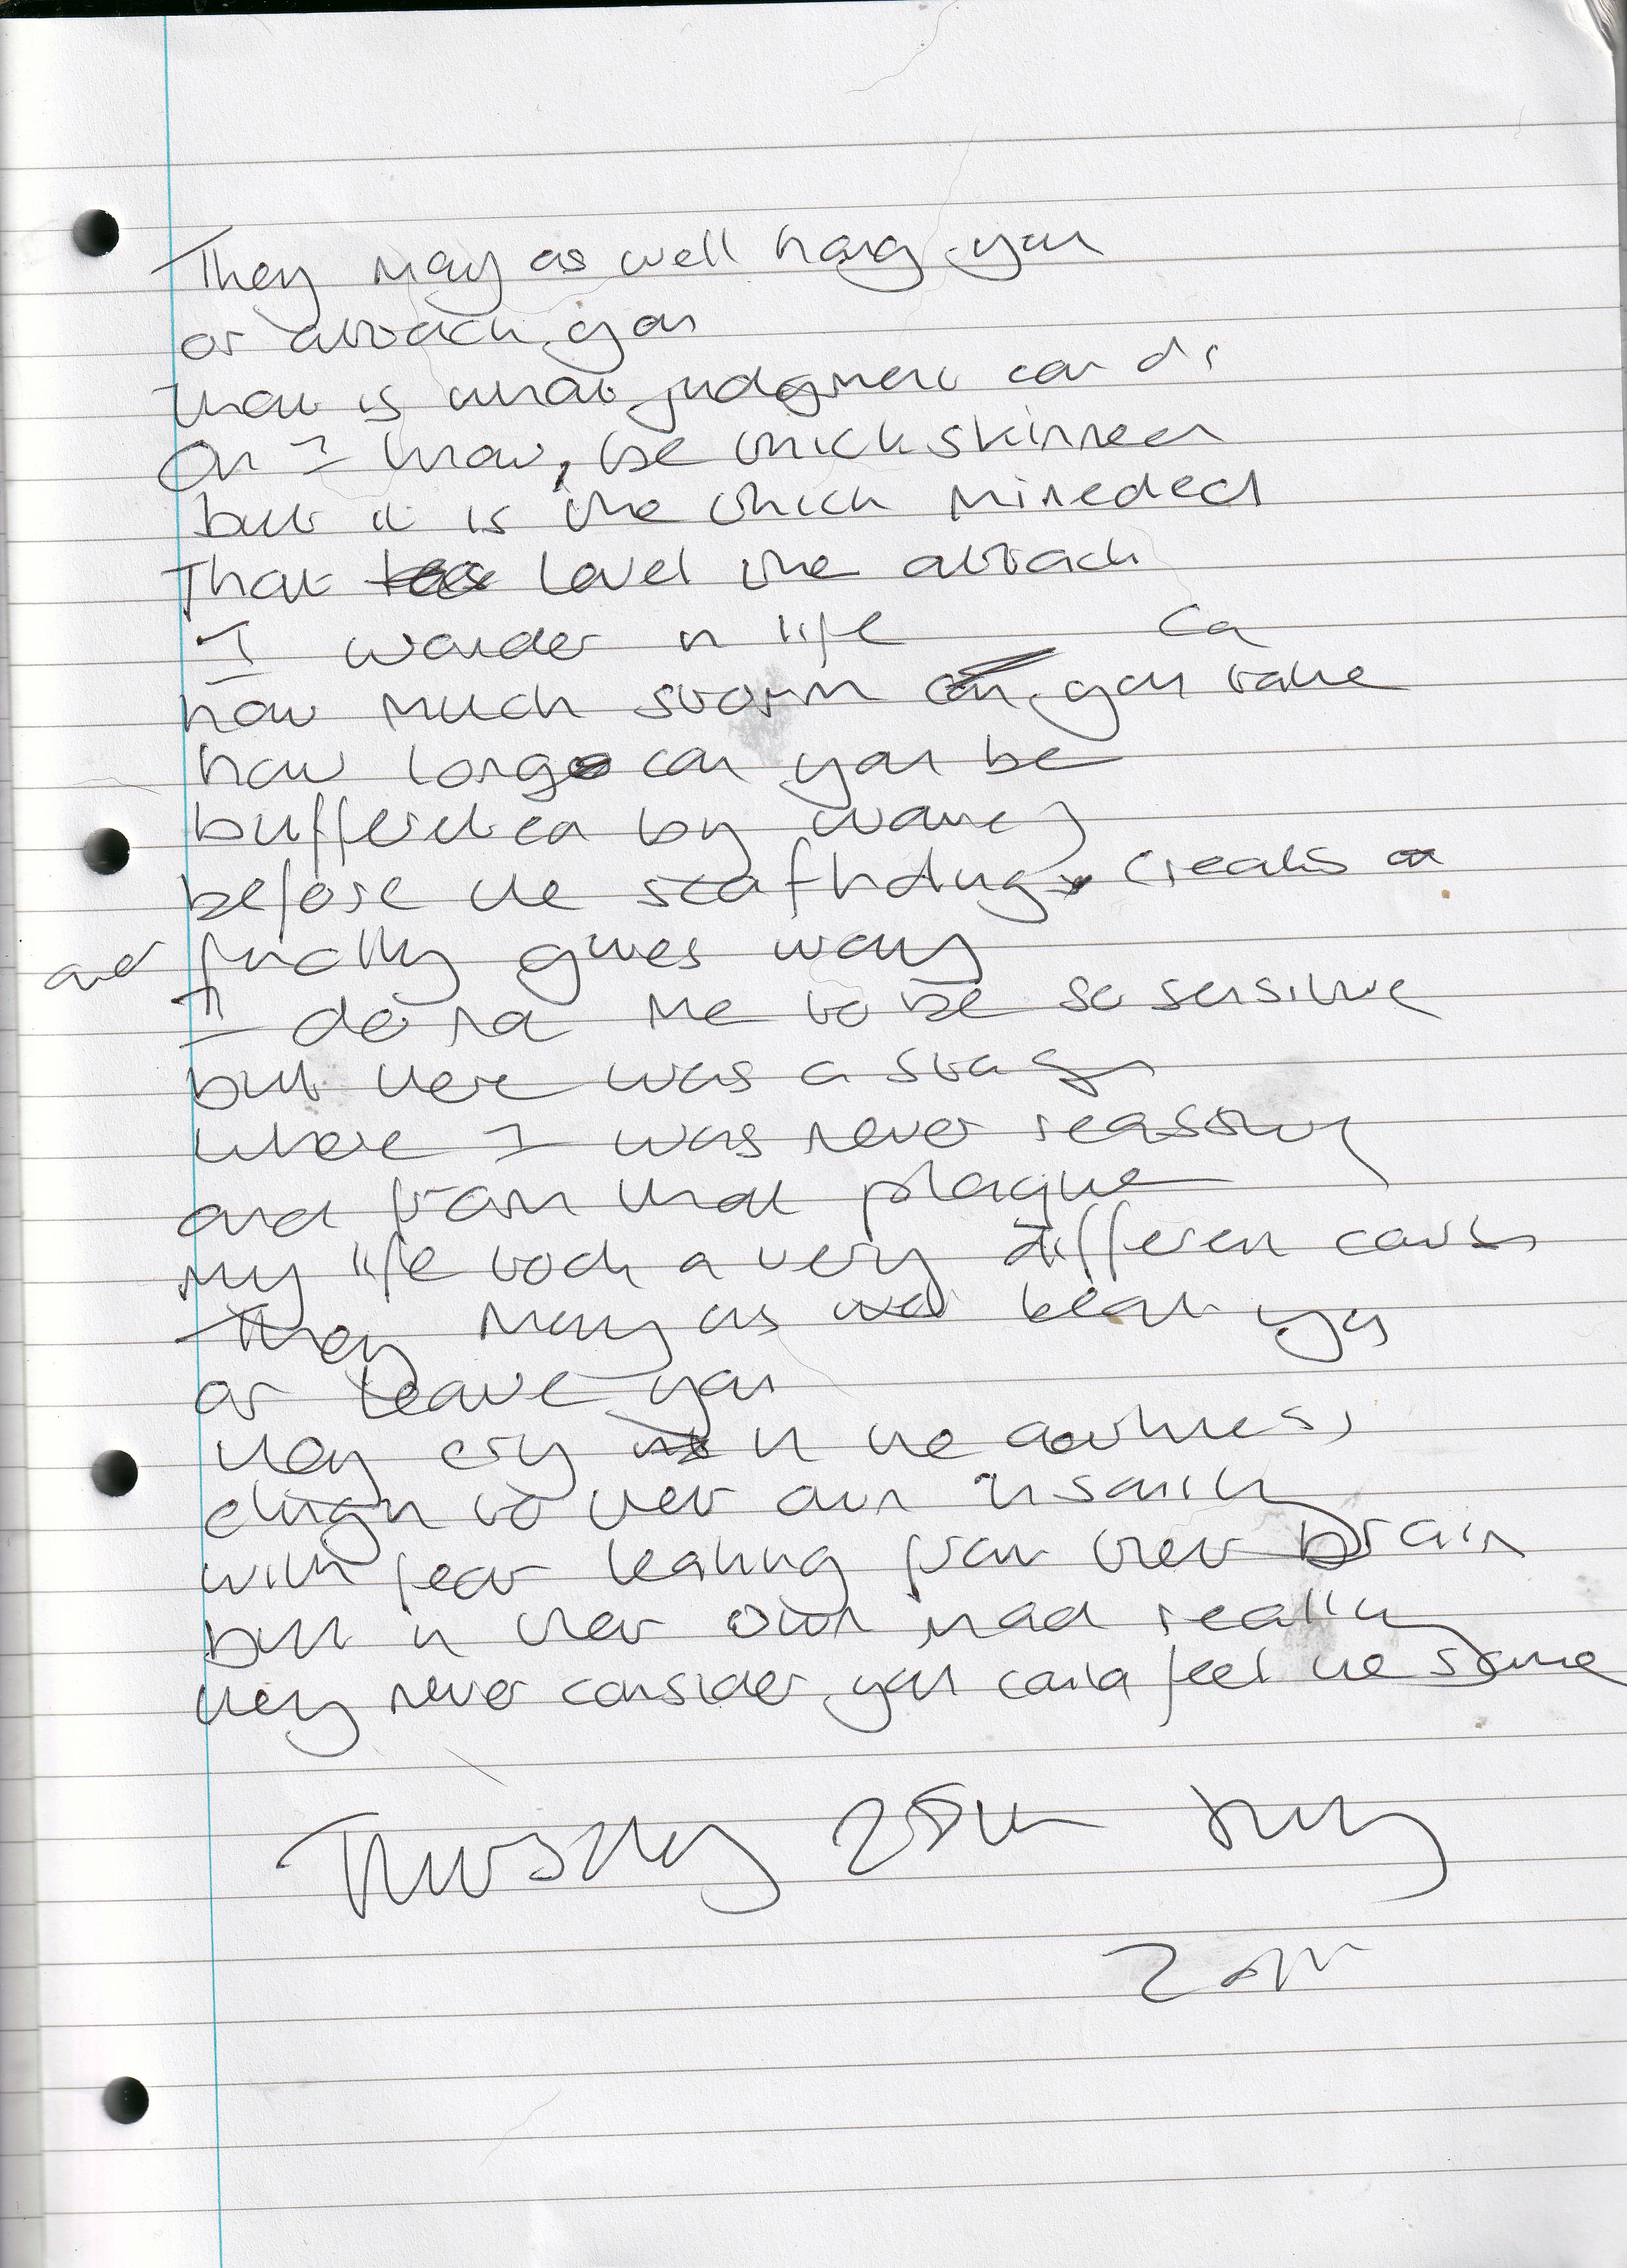 They may as well hang you
or attack you
that is what judgment can do
Oh I know, be thick skinned
but it is the thick mineded
That level the attack
I wonder in life
how much storm can you take
how long can you be
buffetted by waves
before the scaffolding creaks
and finally gives way
I do me to be so sensitive
but there was a stage
where I was never
and from that plague
my life took a very different course
They may as well beat you
or leave you
they cry in the darkness,
cling to their own insanity
with fear leaking from their brain
but in their own mad reality
they never consider you could feel the same
Thursday 25th July